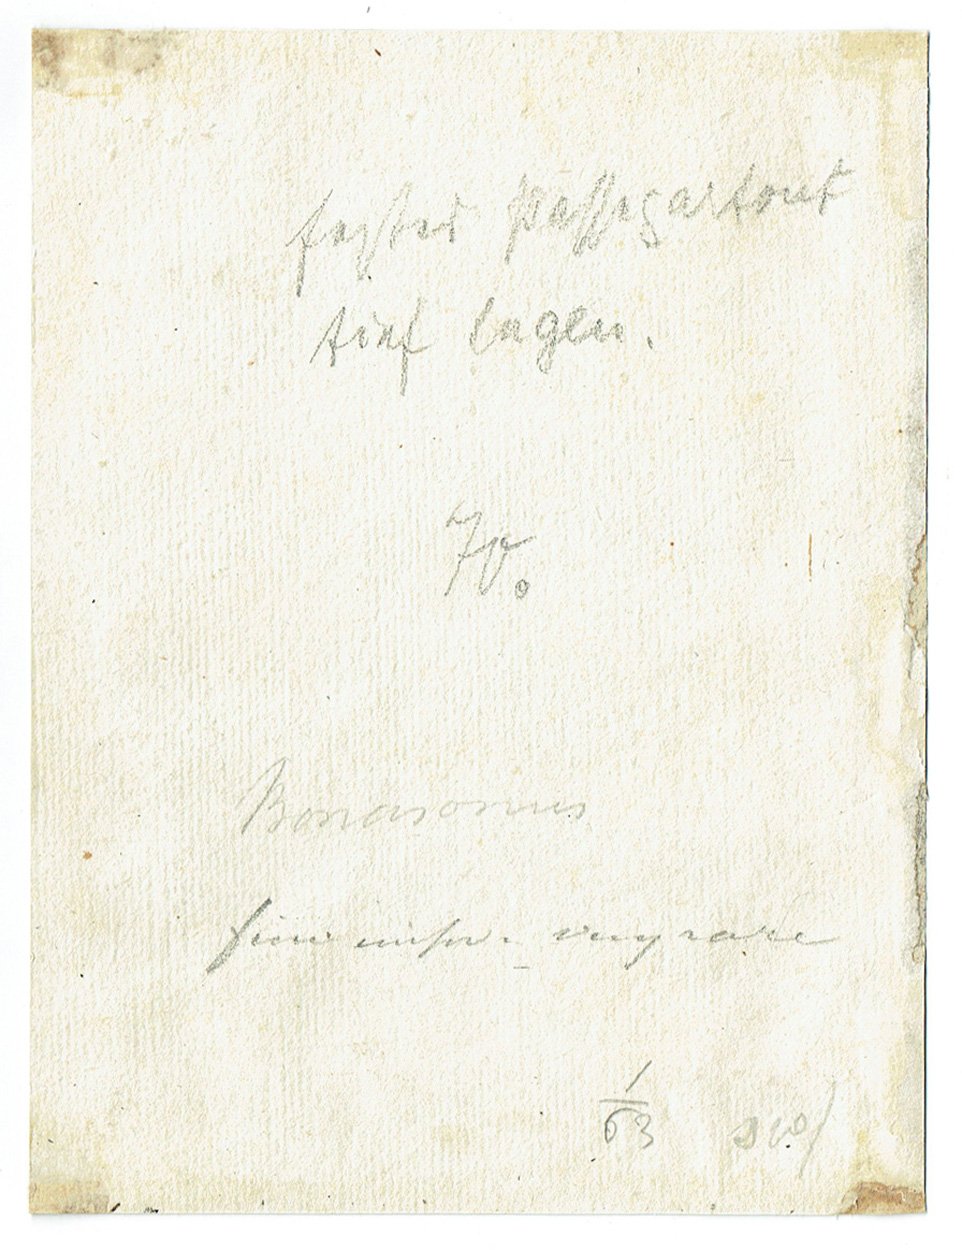 fester Passepartout
tief legen.
70.
Bonasonus
fine impr. very rare
1
63